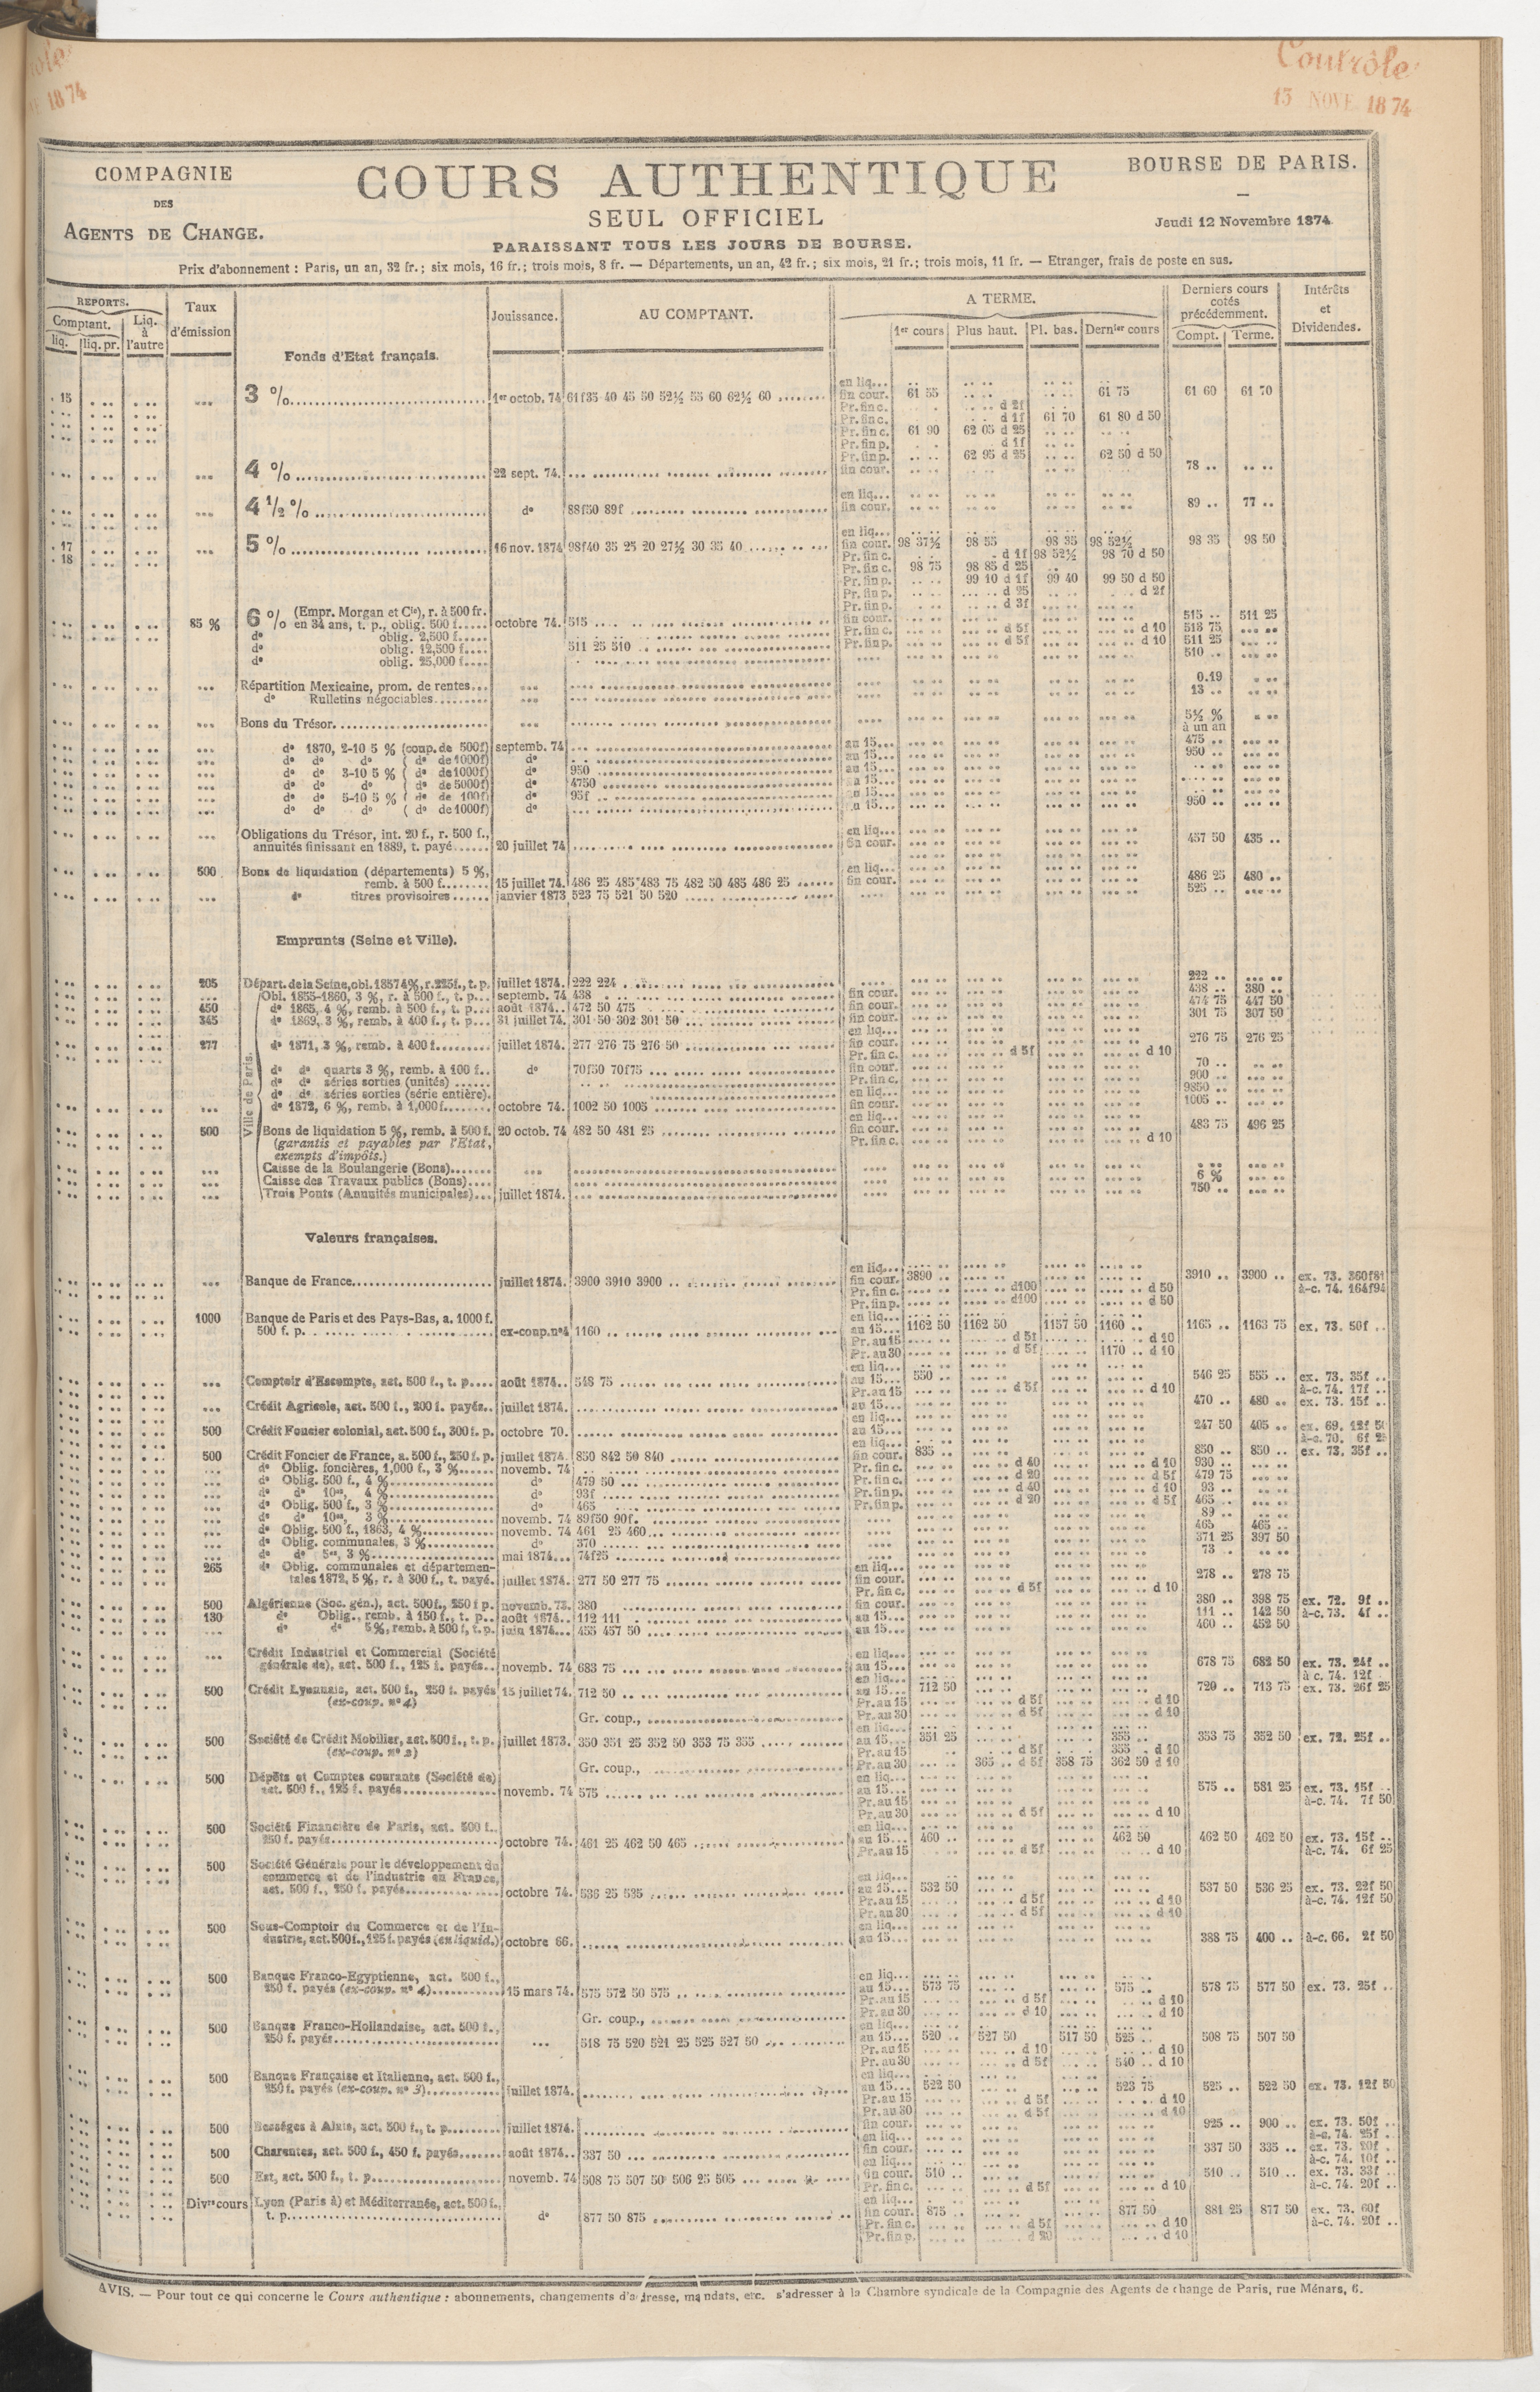 Contrôle
13 NOVE. 1874
COMPAGNIE
DES
AGENTS DE CHANGE.
COURS AUTHENTIQUE
SEUL OFFICIEL
PARAISSANT TOUS LES JOURS DE BOURSE.
BOURSE DE PARIS.
Jeudi 12 Novembre 1874
Prix d'abonnement : Paris, un an, 32 fr.; six mois, 16 fr.; trois mois, 8 fr. — Départements, un an, 42 fr.; six mois, 21 fr.; trois mois, 11 fr. — Etranger, frais de poste en sus.
REPORTS.
Comptant.
liq. liq. pr.
Liq. à l'autre
Taux d'émission
Jouissance.
AU COMPTANT.
A TERME.
1er cours Plus haut. Pl. bas. Dernier cours
Derniers cours cotés précédemment.
Compt. Terme.
Intérêts et Dividendes.
Fonds d'Etat français.
en liq...
. 15 3 % 1er octob. 74 61f35 40 45 50 52½ 55 60 62½ 60 fin cour. 61 55 61 75 61 60 61 70
Pr. fin c. d 2f
Pr. fin c. d 1f 61 70 61 80 d 50
Pr. fin c. 61 90 62 05 d 25
Pr. fin p. d 1f
Pr. fin p. 62 95 d 25 62 50 d 50
4 % 22 sept. 74. fin cour. 78 ..
en liq...
4 ½ % do 88f50 89f fin cour. 89 .. 77 ..
en liq...
. 17 5 % 16 nov. 1874 98f40 35 25 20 27½ 30 35 40 fin cour. 98 37½ 98 55 98 35 98 52½ 98 35 98 50
. 18 Pr. fin c. d 1f 98 52½ 98 70 d 50
Pr. fin c. 98 75 98 85 d 25
Pr. fin p. 99 10 d 1f 99 40 99 50 d 50
Pr. fin p. d 25 d 2f
Pr. fin p. d 3f
85 % 6 % (Empr. Morgan et Cie), r. à 500 fr. en 34 ans, t. p., oblig. 500 f. octobre 74. 515 fin cour. 515 .. 511 25
do oblig. 2,500 f. Pr. fin c. d 5f d 10 513 75
do oblig. 12,500 f. 511 25 510 Pr. fin p. d 5f d 10 511 25
do oblig. 25,000 f. 510 ..
Répartition Mexicaine, prom. de rentes... 0.19
do Rulletins négociables 13 ..
Bons du Trésor 5½ % à un an
do 1870, 2-10 5 % (coup. de 500f) septemb. 74 au 15... 475 ..
do do do ( do de 1000f) do au 15... 950 ..
do do 3-10 5 % ( do de 1000f) do 950 au 15...
do do do ( do de 5000f) do 4750
do do 5-10 5 % ( do de 100f) do 95f
do do do ( do de 1000f) do 950 ..
Obligations du Trésor, int. 20 f., r. 500 f., en liq...
annuités finissant en 1889, t. payé 20 juillet 74 fin cour. 457 50 435 ..
500 Bons de liquidation (départements) 5 %, en liq...
remb. à 500 f. 15 juillet 74. 486 25 485 483 75 482 50 485 486 25 fin cour. 486 25 480 ..
do titres provisoires janvier 1873 523 75 521 50 520 525 ..
Emprunts (Seine et Ville).
205 Départ. de la Seine, obl. 1857 4%, r. 225f., t. p. juillet 1874. 222 224 222 ..
Ville de Paris.
Obl. 1855-1860, 3 %, r. à 500 f., t. p. septemb. 74 438 fin cour. 438 .. 380 ..
450 do 1865, 4 %, remb. à 500 f., t. p. août 1874.. 472 50 475 fin cour. 474 75 447 50
345 do 1869, 3 %, remb. à 400 f., t. p. 31 juillet 74. 301 50 302 301 50 fin cour. 301 75 307 50
en liq...
277 do 1871, 3 %, remb. à 400 f. juillet 1874. 277 276 75 276 50 fin cour. 276 75 276 25
Pr. fin c. d 5f d 10
do do quarts 3 %, remb. à 100 f.. do 70f50 70f75 fin cour. 70 ..
do do séries sorties (unités) Pr. fin c. 900 ..
do do séries sorties (série entière). en liq... 9850 ..
do 1872, 6 %, remb. à 1,000f. octobre 74. 1002 50 1005 fin cour. 1005 ..
en liq...
500 Bons de liquidation 5 %, remb. à 500 f. 20 octob. 74 482 50 481 25 fin cour. 483 75 496 25
(garantis et payables par l'Etat, Pr. fin c. d 10
exempts d'impôts.)
Caisse de la Boulangerie (Bons)
Caisse des Travaux publics (Bons) 6 %
Trois Ponts (Annuités municipales) juillet 1874. 750 ..
Valeurs françaises.
en liq...
Banque de France juillet 1874. 3900 3910 3900 fin cour. 3890 3910 .. 3900 .. ex. 73. 360f81
Pr. fin c. d100 d 50 à-c. 74. 164f94
Pr. fin p. d100 d 50
1000 Banque de Paris et des Pays-Bas, a. 1000 f. en liq...
500 f. p. ex-coup. no 4 1160 au 15... 1162 50 1162 50 1157 50 1160 .. 1165 .. 1163 75 ex. 73. 50f
Pr. au 15 d 5f d 10
Pr. au 30 d 5f 1170 .. d 10
en liq...
Comptoir d'Escompte, act. 500 f., t. p. août 1874.. 548 75 au 15... 550 546 25 555 .. ex. 73. 35f
Pr. au 15 d 5f d 10 à-c. 74. 17f
Crédit Agricole, act. 500 f., 200 f. payés.. juillet 1874. au 15... 470 .. 480 .. ex. 73. 15f
en liq...
500 Crédit Foncier colonial, act. 500 f., 300 f. p. octobre 70. au 15... 247 50 405 .. ex. 69. 12f 50
en liq... à-c. 70. 6f 25
500 Crédit Foncier de France, a. 500 f., 250 f. p. juillet 1874. 850 842 50 840 fin cour. 835 850 .. 850 .. ex. 73. 35f
do Oblig. foncières, 1,000 f., 3 % novemb. 74 Pr. fin c. d 40 d 10 930 ..
do Oblig. 500 f., 4 % do 479 50 Pr. fin c. d 20 d 5f 479 75
do do 10es, 4 % do 93f Pr. fin p. d 40 d 10 93 ..
do Oblig. 500 f., 3 % do 465 Pr. fin p. d 20 d 5f 465 ..
do do 10es, 3 % novemb. 74 89f50 90f. 89 ..
do Oblig. 500 f., 1863, 4 % novemb. 74 461 25 460 465 465 ..
do Oblig. communales, 3 % do 370 371 25 397 50
do do 5es, 3 % mai 1874 74f25 73 ..
265 do Oblig. communales et départemen- en liq...
tales 1872, 5 %, r. à 300 f., t. payé. juillet 1874. 277 50 277 75 fin cour. 278 .. 278 75
Pr. fin c. d 5f d 10
500 Algérienne (Soc. gén.), act. 500 f., 250 f p. novemb. 73. 380 fin cour. 380 .. 398 75 ex. 72. 9f
130 do Oblig., remb. à 150 f., t. p. août 1874.. 112 111 au 15... 111 .. 142 50 à-c. 73. 4f
do do 5 %, remb. à 500 f, t. p. juin 1874... 455 457 50 au 15... 460 .. 452 50
Crédit Industriel et Commercial (Société en liq...
générale de), act. 500 f., 125 f. payés.. novemb. 74 683 75 au 15... 678 75 682 50 ex. 73. 24f
en liq... à c. 74. 12f
500 Crédit Lyonnais, act. 500 f., 250 f. payés 15 juillet 74. 712 50 au 15... 712 50 720 .. 713 75 ex. 73. 26f 25
(ex-coup. no 4) Pr. au 15 d 5f d 10
Gr. coup., Pr. au 30 d 5f d 10
en liq...
500 Société de Crédit Mobilier, act. 500 f., t. p. juillet 1873. 350 351 25 352 50 353 75 355 au 15... 351 25 355 353 75 352 50 ex. 72. 25f
(ex-coup. no 2) Pr. au 15 d 5f 355 d 10
Gr. coup., Pr. au 30 365 .. d 5f 358 75 362 50 d 10
500 Dépôts et Comptes courants (Société de) en liq...
act. 500 f., 125 f. payés novemb. 74 575 au 15... 575 .. 581 25 ex. 73. 15f
Pr. au 15 à-c. 74. 7f 50
Pr. au 30 d 5f d 10
500 Société Financière de Paris, act. 500 f., en liq...
250 f. payés octobre 74. 461 25 462 50 465 au 15... 460 .. 462 50 462 50 462 50 ex. 73. 15f
Pr. au 15 d 5f d 10 à-c. 74. 6f 25
500 Société Générale pour le développement du
commerce et de l'industrie en France, en liq...
act. 500 f., 250 f. payés octobre 74. 536 25 535 au 15... 532 50 537 50 536 25 ex. 73. 22f 50
Pr. au 15 d 5f d 10 à-c. 74. 12f 50
Pr. au 30 d 5f d 10
500 Sous-Comptoir du Commerce et de l'In- en liq...
dustrie, act. 500f., 125 f. payés (en liquid.) octobre 66. au 15... 388 75 400 .. à-c. 66. 2f 50
500 Banque Franco-Egyptienne, act. 500 f., en liq...
250 f. payés (ex-coup. no 4) 15 mars 74. 575 572 50 575 au 15... 573 75 575 .. 578 75 577 50 ex. 73. 25f
Pr. au 15 d 5f d 10
Gr. coup., Pr. au 30 d 10 d 10
500 Banque Franco-Hollandaise, act. 500 f., en liq...
250 f. payés 518 75 520 521 25 525 527 50 au 15... 520 .. 527 50 517 50 525 .. 508 75 507 50
Pr. au 15 d 10 d 10
Pr. au 30 d 5f 540 .. d 10
500 Banque Française et Italienne, act. 500 f., en liq...
250 f. payés (ex-coup. no 3) juillet 1874. au 15... 522 50 523 75 525 .. 522 50 ex. 73. 12f 50
Pr. au 15 d 5f d 10
Pr. au 30 d 5f d 10
500 Bességes à Alais, act. 500 f., t. p. juillet 1874. fin cour. 925 .. 900 .. ex. 73. 50f
en liq... à-c. 74. 25f
500 Charentes, act. 500 f., 450 f. payés août 1874.. 337 50 fin cour. 337 50 335 .. ex. 73. 20f
en liq... à-c. 74. 10f
500 Est, act. 500 f., t. p. novemb. 74 508 75 507 50 506 25 505 fin cour. 510 .. 510 .. 510 .. ex. 73. 33f
Pr. fin c. d 5f d 10 à-c. 74. 20f
Divers cours Lyon (Paris à) et Méditerranée, act. 500 f., en liq...
t. p. do 877 50 875 fin cour. 875 877 50 881 25 877 50 ex. 73. 60f
Pr. fin c. d 5f d 10 à-c. 74. 20f
Pr. fin p. d 20 d 10
AVIS. — Pour tout ce qui concerne le Cours authentique : abonnements, changements d'adresse, mandats, etc. s'adresser à la Chambre syndicale de la Compagnie des Agents de change de Paris, rue Ménars, 6.